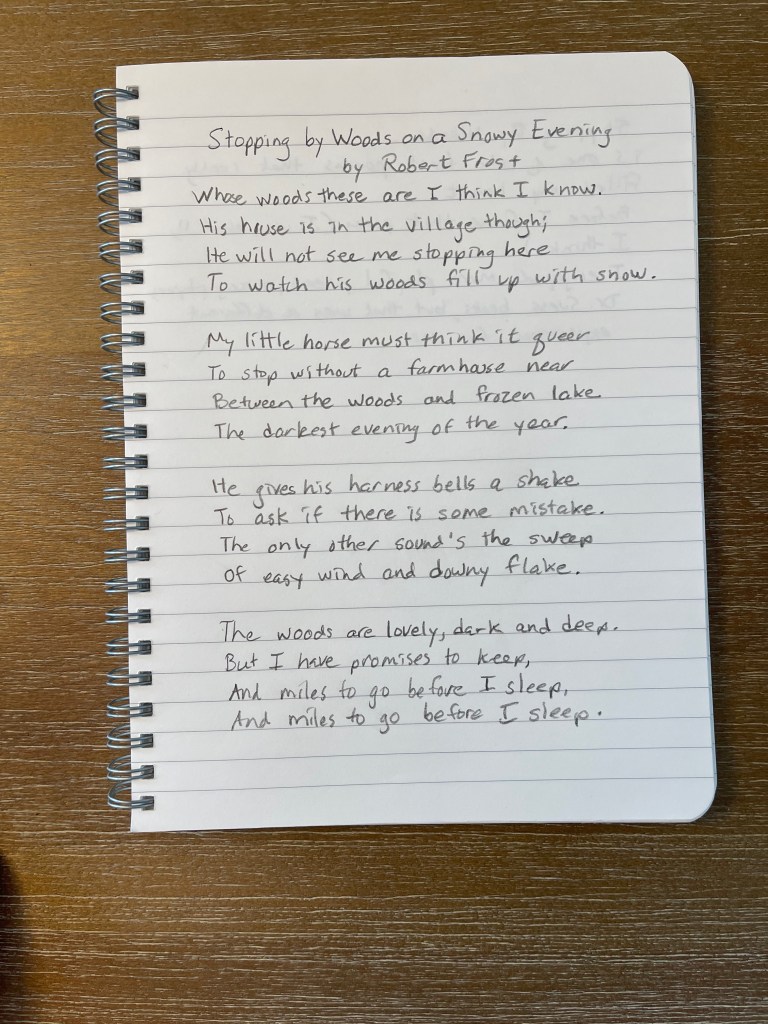 Stopping by Woods on a Snowy Evening
by Robert Frost
Whose woods these are I think I know.
His house is in the village though;
He will not see me stopping here
To watch his woods fill up with snow.
My little horse must think it queer
To stop without a farmhouse near
Between the woods and frozen lake
The darkest evening of the year.
He gives his harness bells a shake
To ask if there is some mistake.
The only other sound's the sweep
Of easy wind and downy flake.
The woods are lovely, dark and deep.
But I have promises to keep,
And miles to go before I sleep,
And miles to go before I sleep.